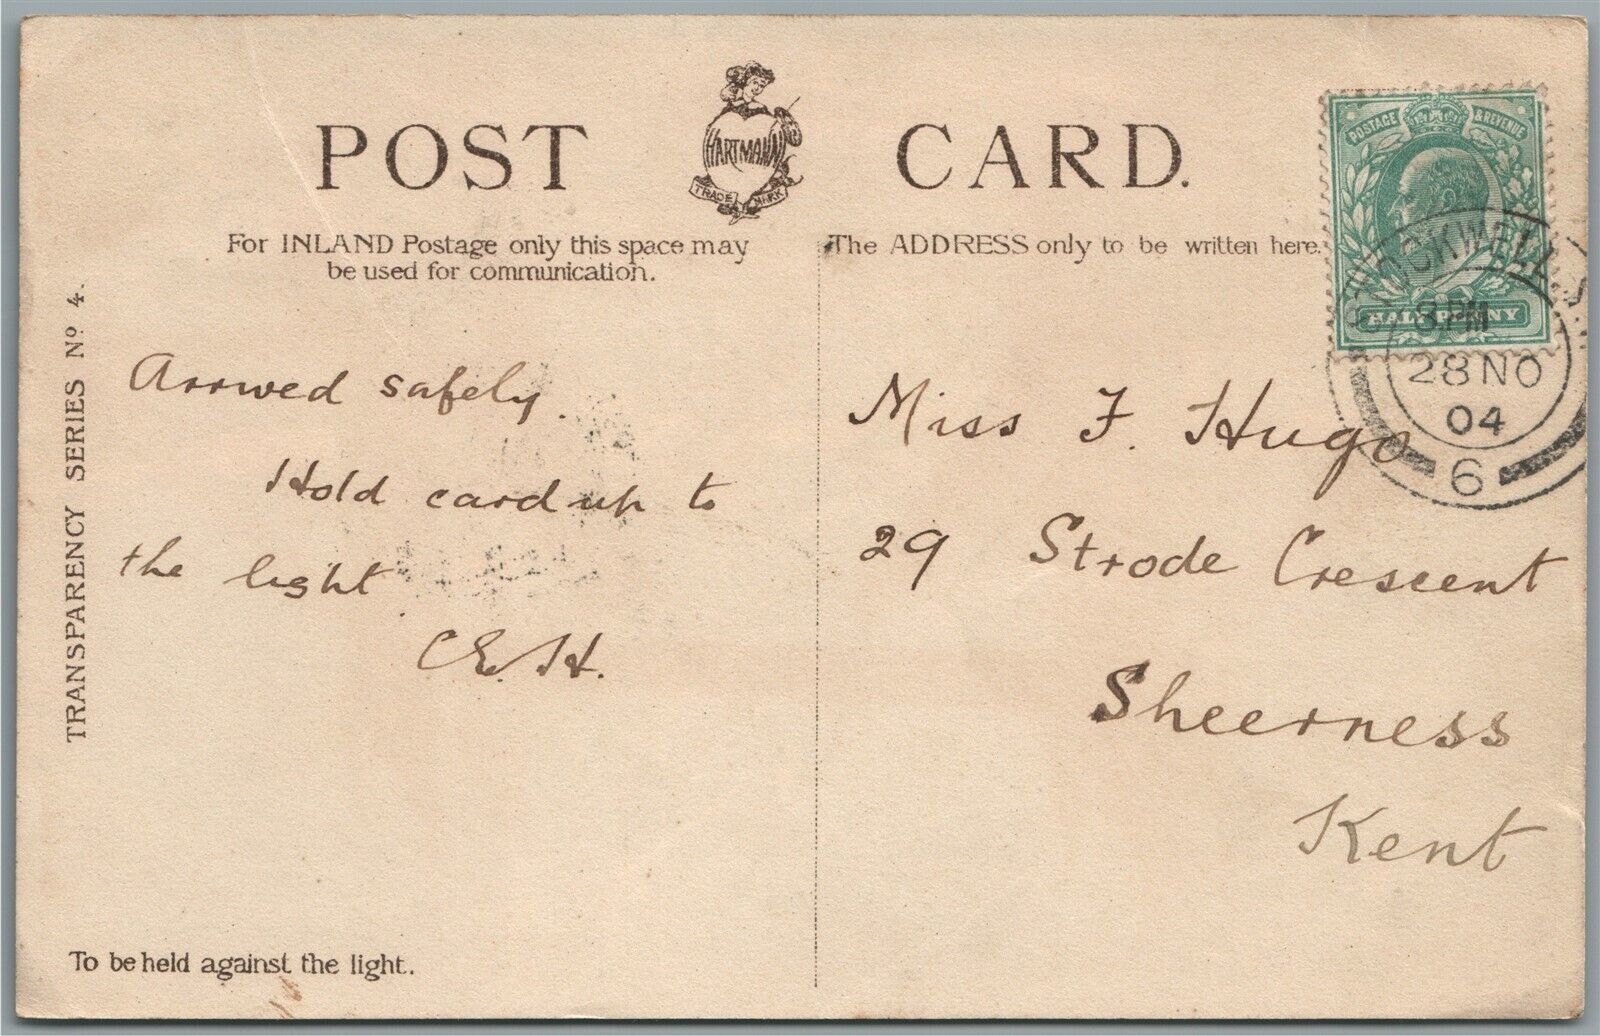 POST CARD.
HARTMANN
TRADE MARK
For INLAND Postage only this space may
be used for communication.
The ADDRESS only to be written here.
POSTAGE & REVENUE
HALFPENNY
STOCKWELL
3.PM
28 NO
04
6
TRANSPARENCY SERIES Nº 4.
Arrived safely.
Hold card up to
the light.
C.E.H.
Miss F. Hugo
29 Strode Crescent
Sheerness
Kent
To be held against the light.